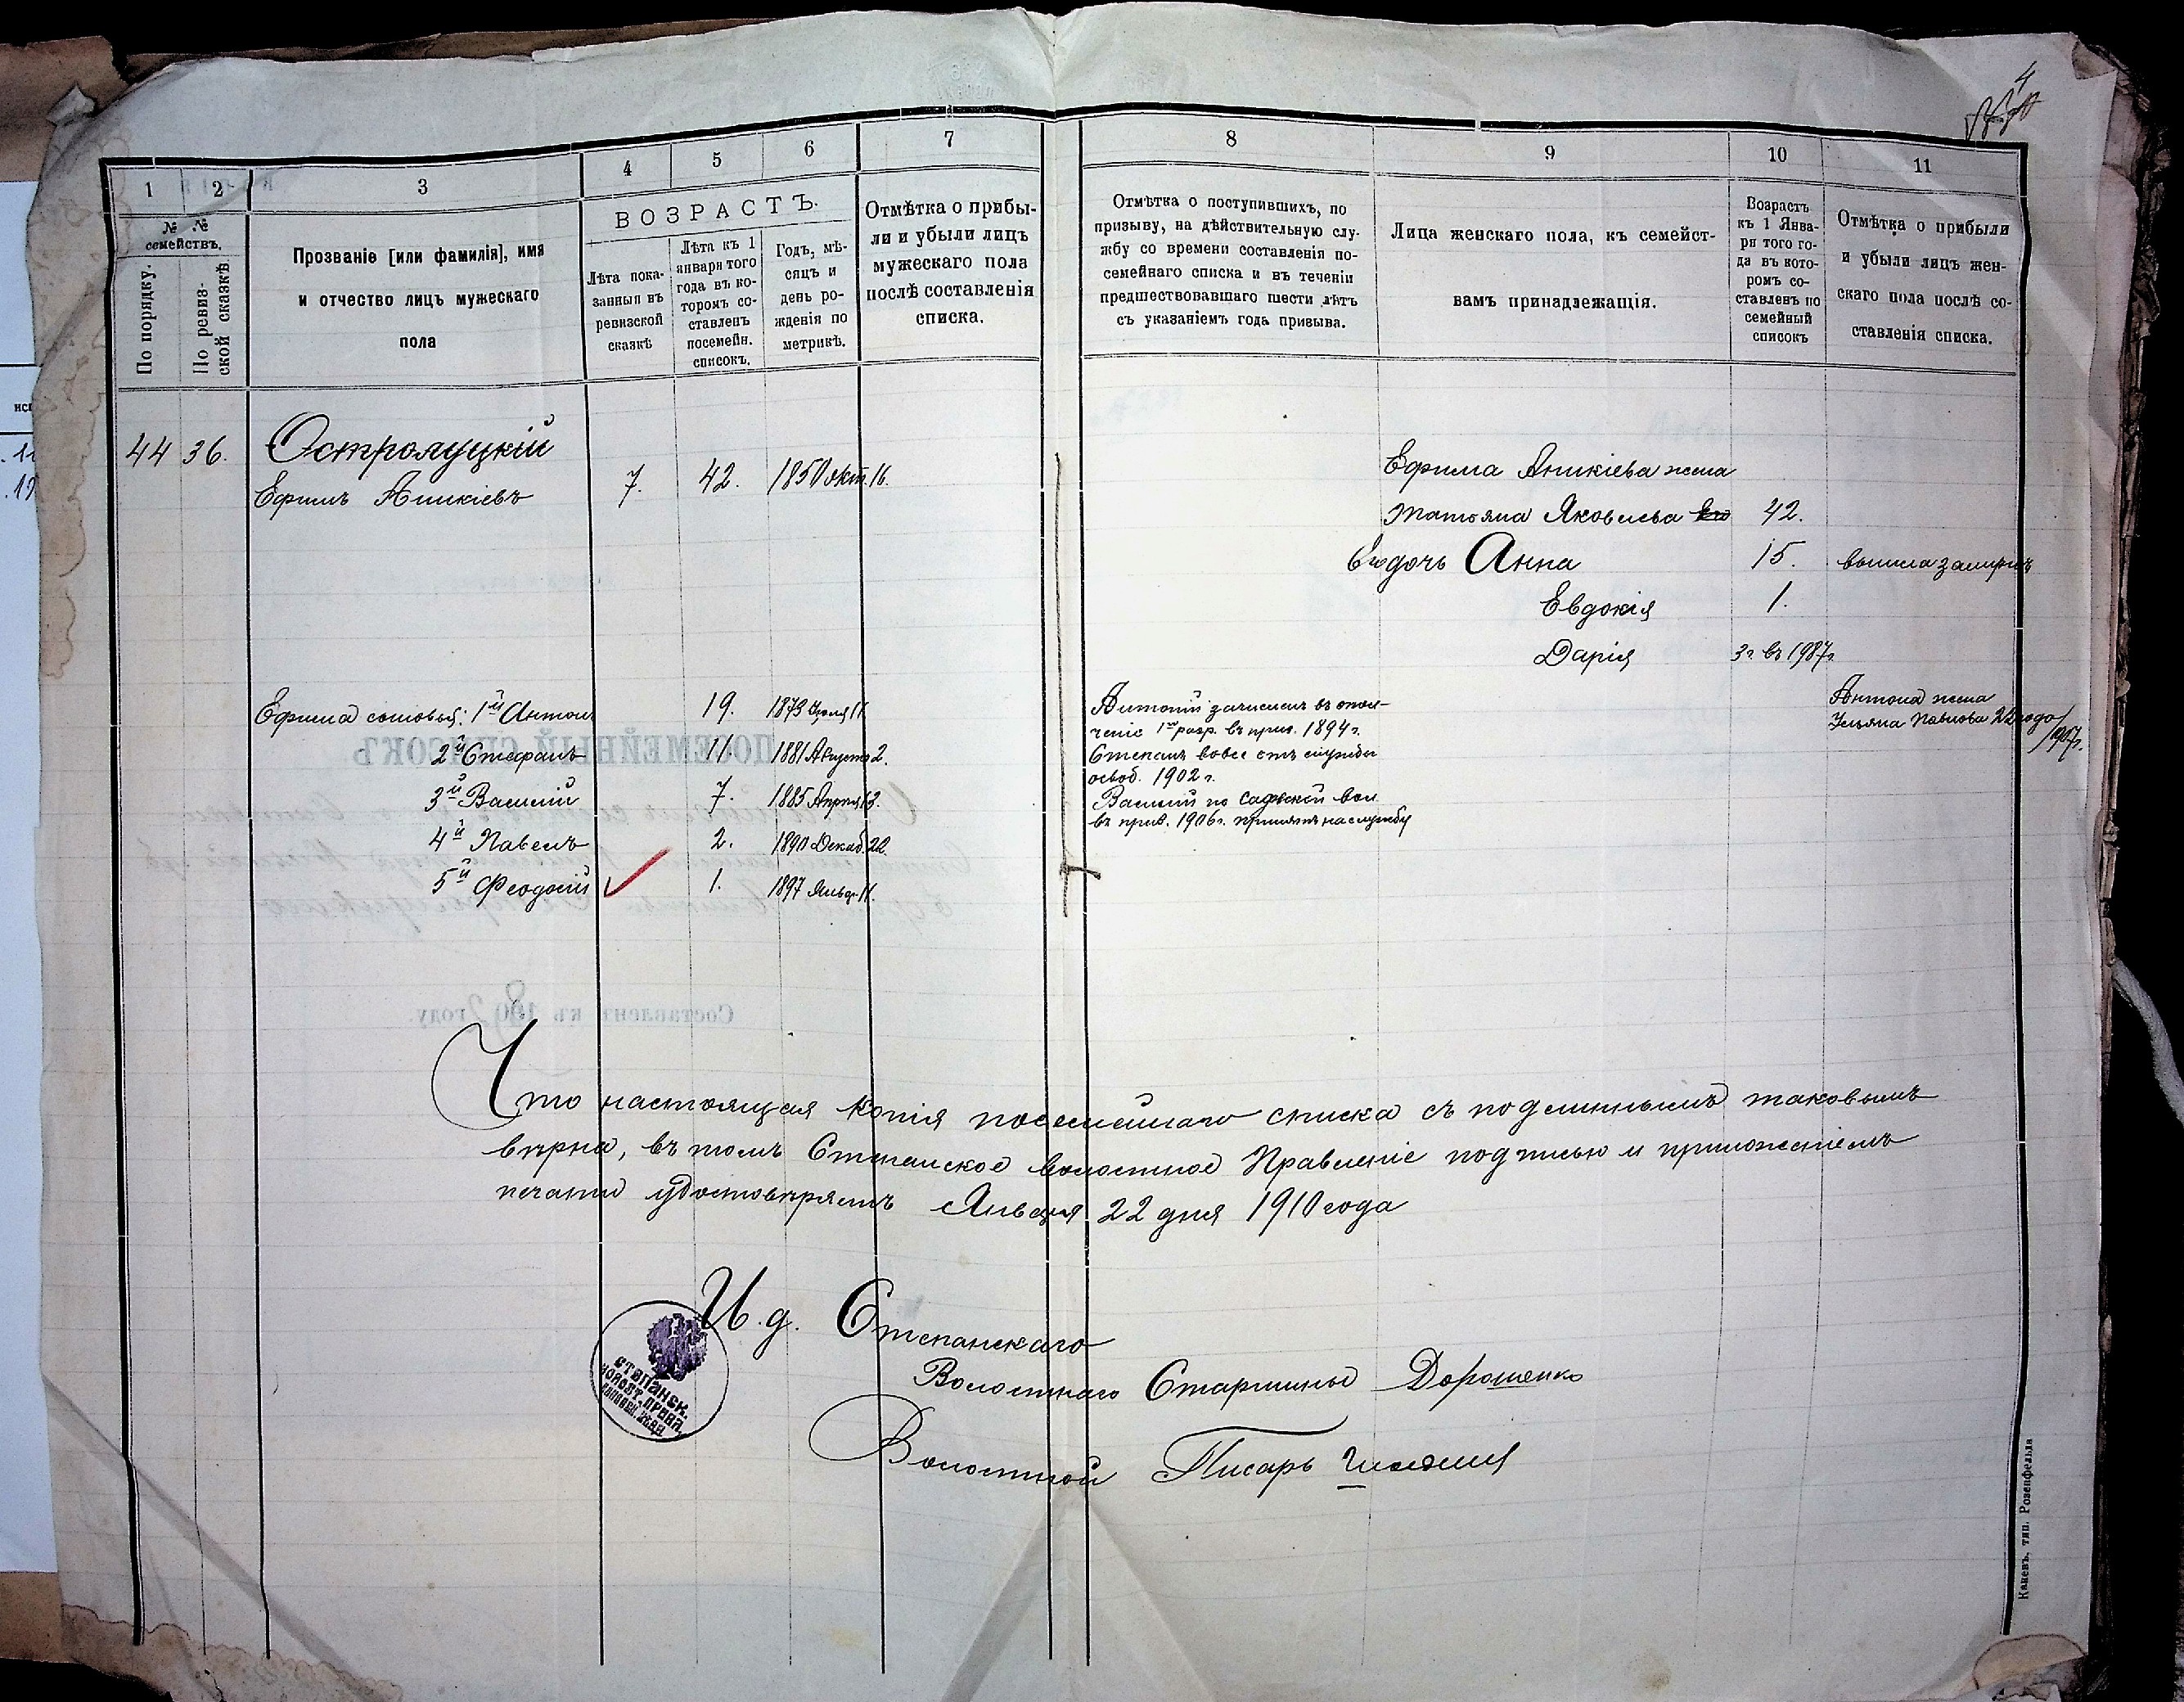 4
1
2
3
4
5
6
7
8
9
10
11
№ №
семействъ.
По порядку.
По ревиз-
ской сказкѣ
Прозваніе [или фамилія], имя
и отчество лицъ мужескаго
пола
ВОЗРАСТЪ.
Лѣта пока-
занныя въ
ревизской
сказкѣ
Лѣта къ 1
января того
года въ ко-
торомъ со-
ставленъ
посемейн.
списокъ.
Годъ, мѣ-
сяцъ и
день ро-
жденія по
метрикѣ.
Отмѣтка о прибы-
ли и убыли лицъ
мужескаго пола
послѣ составленія
списка.
Отмѣтка о поступившихъ, по
призыву, на дѣйствительную слу-
жбу со времени составленія по-
семейнаго списка и въ теченіи
предшествовавшаго шести лѣтъ
съ указаніемъ года призыва.
Лица женскаго пола, къ семейст-
вамъ принадлежащія.
Возрастъ
къ 1 Янва-
ря того го-
да въ кото-
ромъ со-
ставленъ по
семейный
списокъ
Отмѣтка о прибыли
и убыли лицъ жен-
скаго пола послѣ со-
ставленія списка.
44 36. Остролуцкій
Ефимъ Аникіевъ 7. 42. 1850 окт. 16.
Ефима Аникіева жена
Татьяна Яковлева 42.
Ея дочь Анна 15. вышла замужъ
Евдокія 1.
Дарія 3 г. въ 1987 г.
Ефима сыновья: 1й Антонъ 19. 1873 Іюля 11.
2й Стефанъ 11. 1881 Августа 2.
3й Василій 7. 1885 Апрѣля 13.
4й Павелъ 2. 1890 Декаб. 22.
5й Феодосій 1. 1897 Январ. 11.
Антоній зачисленъ въ опол-
ченіе 1го разр. въ приз. 1894 г.
Степанъ вовсе отъ службы
освоб. 1902 г.
Василій по вол.
въ приз. 1906 г. принятъ на службу
Антона жена
Ульяна Павлова 22 года
/1907 г.
ПОСЕМЕЙНЫЙ СПИСОКЪ
Составленъ къ 1892 году.
Что настоящая копія посемейнаго списка съ подлиннымъ таковымъ
вѣрна, въ томъ Степанское волостное Правленіе подписью и приложеніемъ
печати удостовѣряетъ Января 22 дня 1910 года
И. д. Степанскаго
Волостнаго Старшины Дорошенко
Волостной Писарь
СТЕПАНСК.
ВОЛОСТ. ПРАВЛ.
Каневъ, тип. Розенфельда